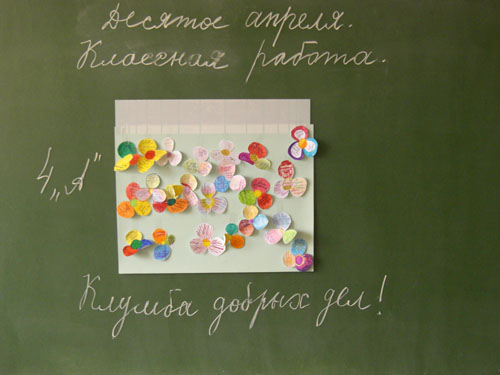 Десятое апреля.
Классная работа.
4 „А"
Клумба добрых дел!